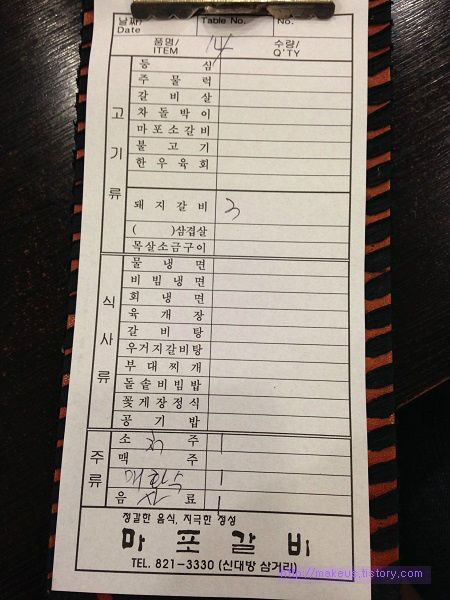 날짜/ Date Table No. No.
품명/ ITEM 14 수량/ Q'TY
고기류
등심
주물럭
갈비살
차돌박이
마포소갈비
불고기
한우육회
돼지갈비 3
( )삼겹살
목살소금구이
식사류
물냉면
비빔냉면
회냉면
육개장
갈비탕
우거지갈비탕
부대찌개
돌솥비빔밥
꽃게장정식
공기밥
주류
소주 처 1
맥주
매화수 1
음료 사 1
정갈한 음식, 지극한 정성
마포갈비
TEL. 821-3330 (신대방 삼거리)
http://makeus.tistory.com